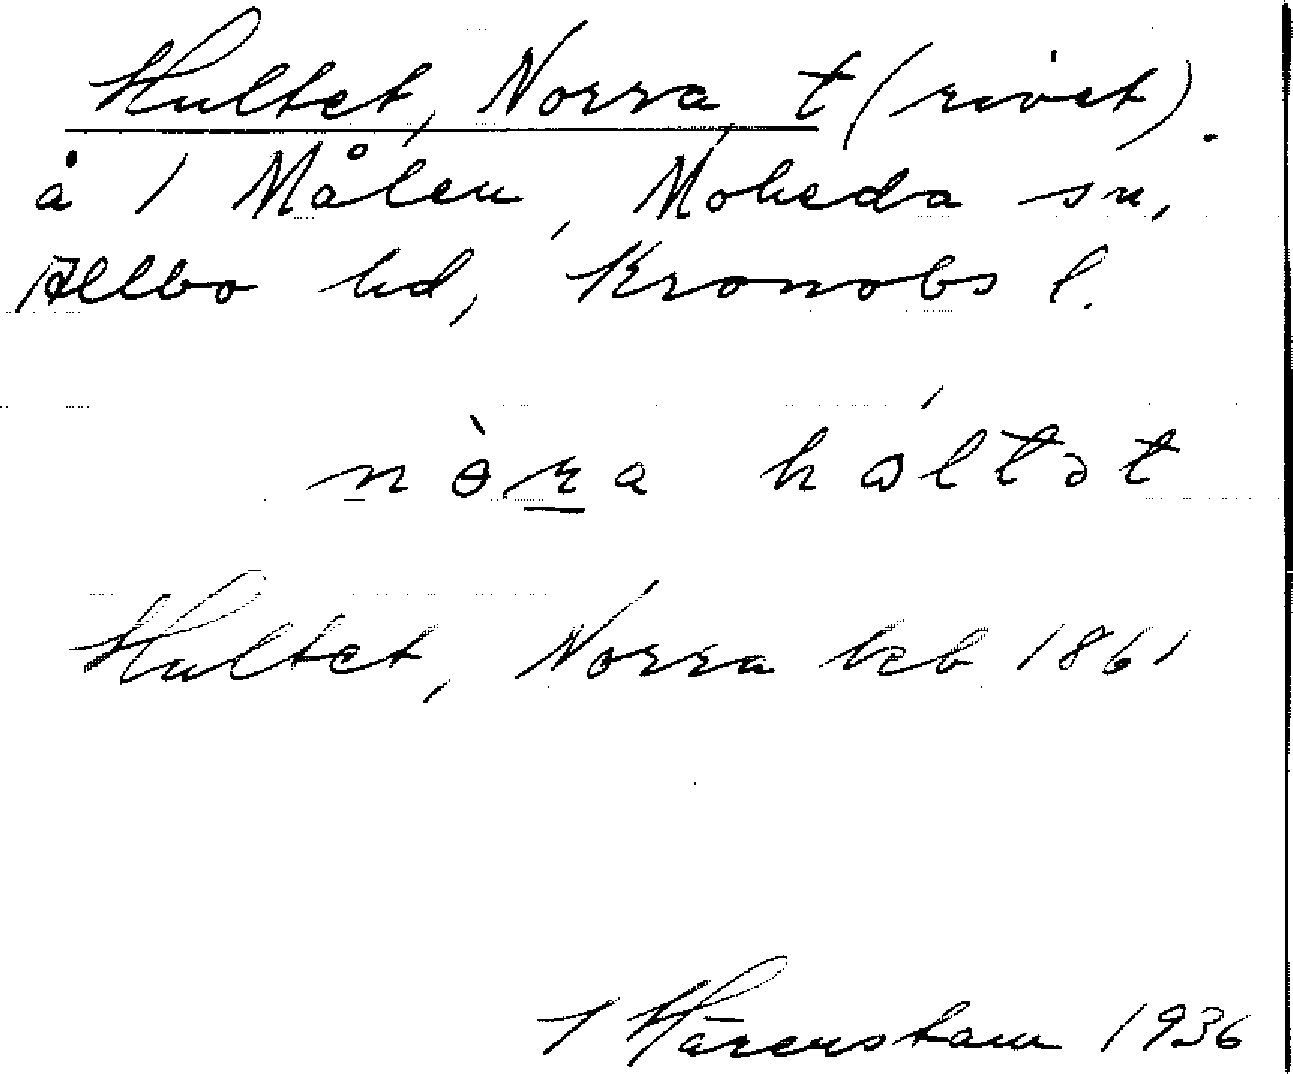 Hultet, Norra t (rivet).
å 1 Målen, Moheda sn,
Allbo hd, Kronobs l.
nòra hɷltət
Hultet, Norra kcb 1861
J Härenstam 1936